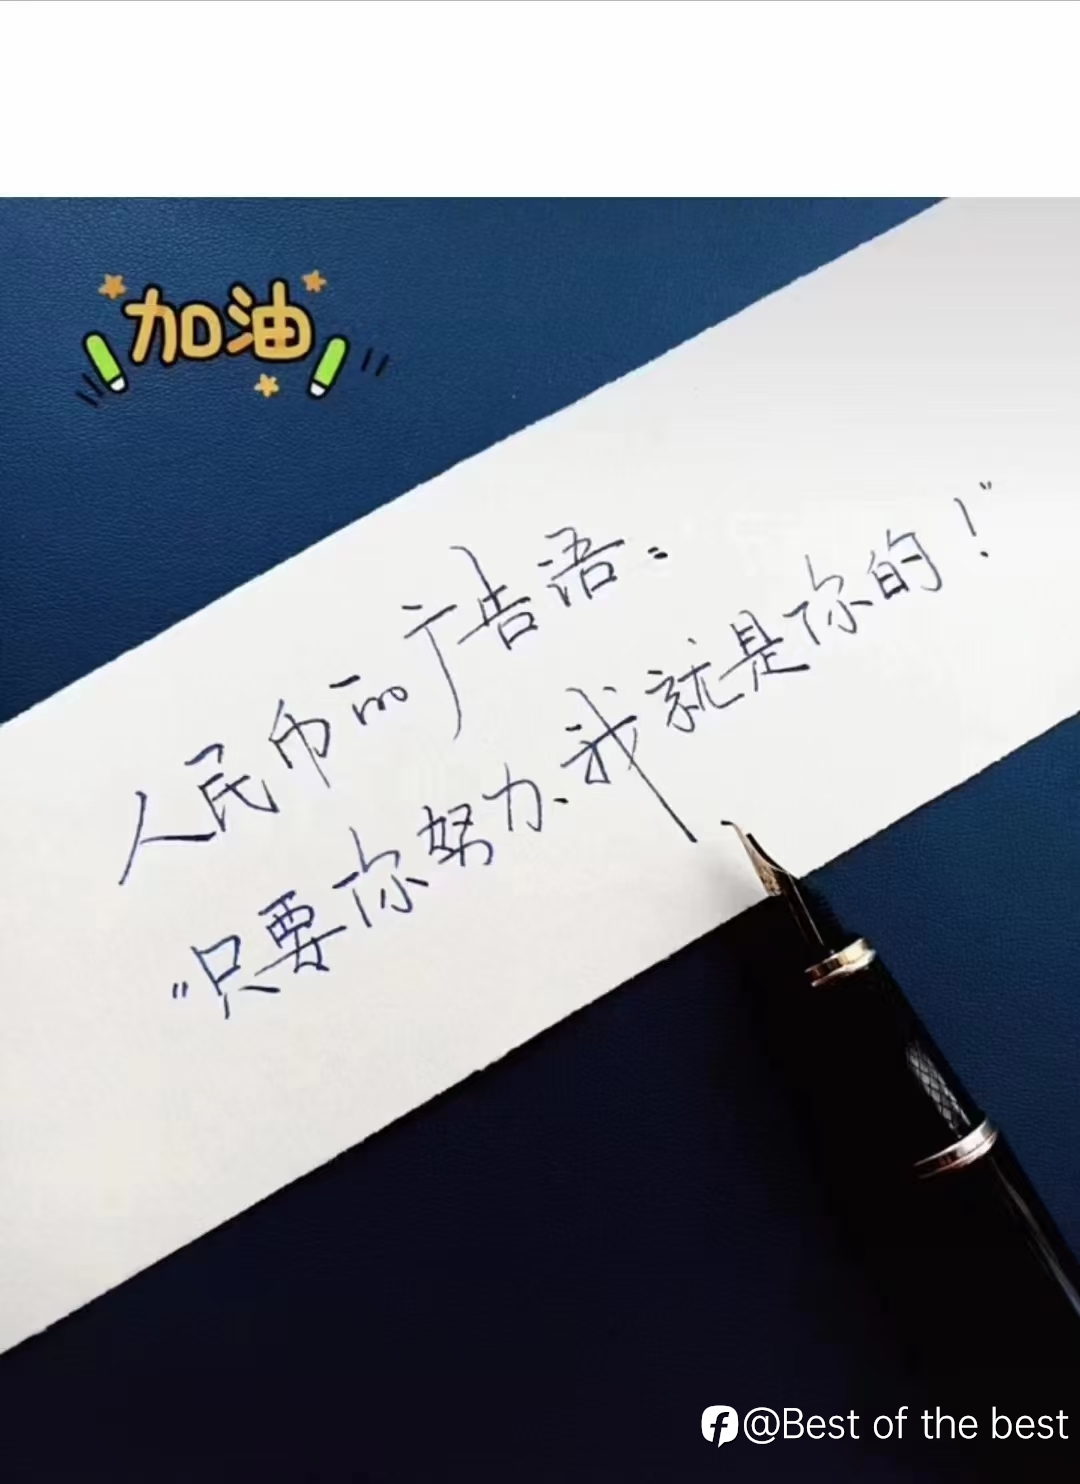 加油
人民币的广告语:
"只要你努力、我就是你的!"
@Best of the best